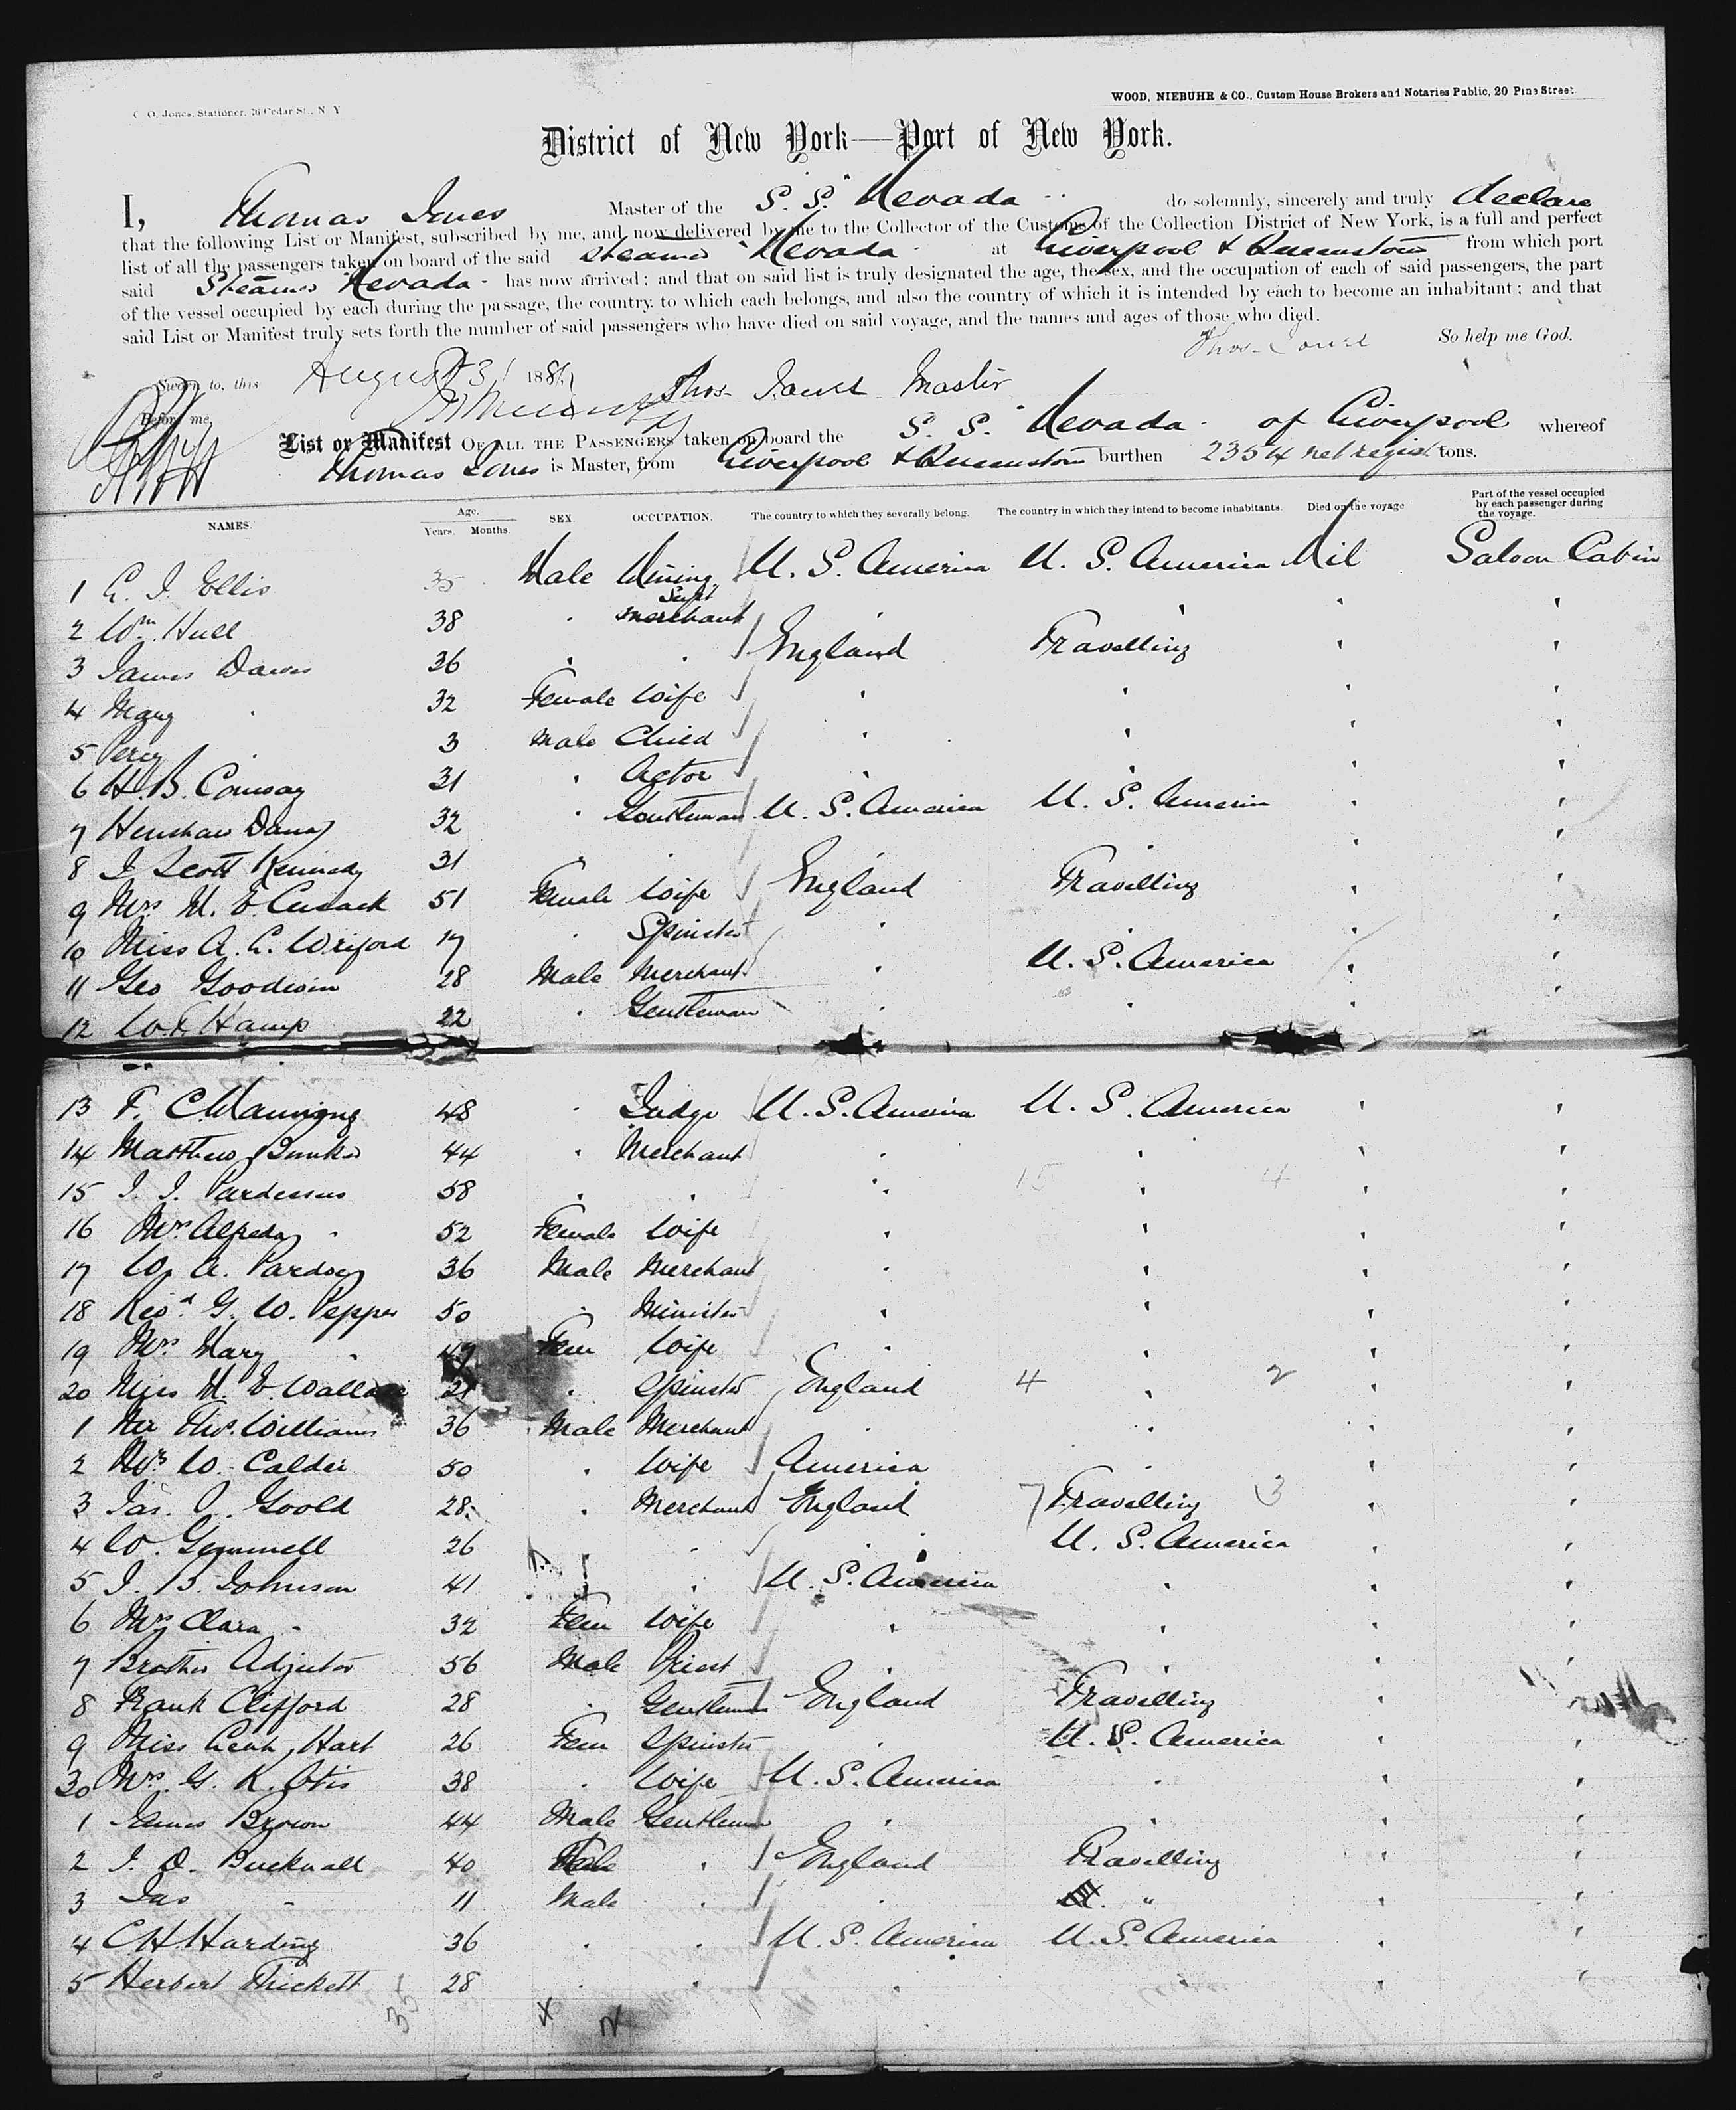 C. O. Jones, Stationer, 76 Cedar St., N. Y
WOOD, NIEBUHR & CO., Custom House Brokers and Notaries Public, 20 Pine Street.
District of New York—Port of New York.
I, Thomas Jones Master of the S. S. "Nevada" do solemnly, sincerely and truly declare
that the following List or Manifest, subscribed by me, and now delivered by me to the Collector of the Customs of the Collection District of New York, is a full and perfect
list of all the passengers taken on board of the said steamer Nevada at Liverpool & Queenstown from which port
said Steamer Nevada has now arrived; and that on said list is truly designated the age, the sex, and the occupation of each of said passengers, the part
of the vessel occupied by each during the passage, the country to which each belongs, and also the country of which it is intended by each to become an inhabitant; and that
said List or Manifest truly sets forth the number of said passengers who have died on said voyage, and the names and ages of those who died.
So help me God.
Sworn to, this August 31 1881 Thos. Jones Master
Before me
List or Manifest OF ALL THE PASSENGERS taken on board the S. S. Nevada of Liverpool whereof
Thomas Jones is Master, from Liverpool & Queenstown burthen 2354 net regist tons.
NAMES. Age. Years. Months. SEX. OCCUPATION. The country to which they severally belong. The country in which they intend to become inhabitants. Died on the voyage Part of the vessel occupied by each passenger during the voyage.
1 Ellis 35 Male Mining Supt U. S. America U. S. America Nil Saloon Cabin
2 Wm Hull 38 " Merchant " " " "
3 James Dawes 36 " " England Travelling " "
4 Mary " 32 Female Wife " " " "
5 Percy " 3 Male Child " " " "
6 H. B. Conway 31 " Actor " " " "
7 Henshaw Dana 32 " Gentleman U. S. America U. S. America " "
8 J Scott Kennedy 31 " " " " " "
9 Mrs M. E. Cusack 51 Female Wife England Travelling " "
10 Miss A. L. Wriford 17 " Spinster " " " "
11 Geo Goodwin 28 Male Merchant " U. S. America " "
12 Hamp 22 " Gentleman " " " "
13 F. C. Manning 48 " Judge U. S. America U. S. America " "
14 Matthew Bunker 44 " Merchant " " " "
15 J. J. Pardessus 58 " " " 15 " 4 " "
16 Mrs Alfreda " 52 Female Wife " " " "
17 W. A. Pardoey 36 Male Merchant " " " "
18 Revd G. W. Pepper 50 " Minister " " " "
19 Mrs Mary " 49 Fem Wife " " " "
20 Miss M. E. Wallace 21 " Spinster England 4 " 2 " "
1 Mr Thos. Williams 36 Male Merchant " " " "
2 Mrs W. Calder 50 " Wife America " " "
3 Jas. Goold 28 " Merchant England 7 Travelling 3 " "
4 W. Gemmell 26 " " " U. S. America " "
5 J. B. Johnson 41 " " U. S. America " " "
6 Mrs Clara " 32 Fem Wife " " " "
7 Brother Adjutor 56 Male Priest " " " "
8 Frank Clifford 28 " Gentleman England Travelling " "
9 Miss Leah Hart 26 Fem Spinster " U. S. America " "
30 Mrs G. K. Otis 38 " Wife U. S. America " " "
1 James Brown 44 Male Gentleman " " " "
2 J. D. Bucknall 40 " England Travelling " "
3 Jas " 11 Male " " " " "
4 C. H. Harding 36 " " U. S. America U. S. America " "
5 Herbert Thickett 28 " " " " " "
35 4